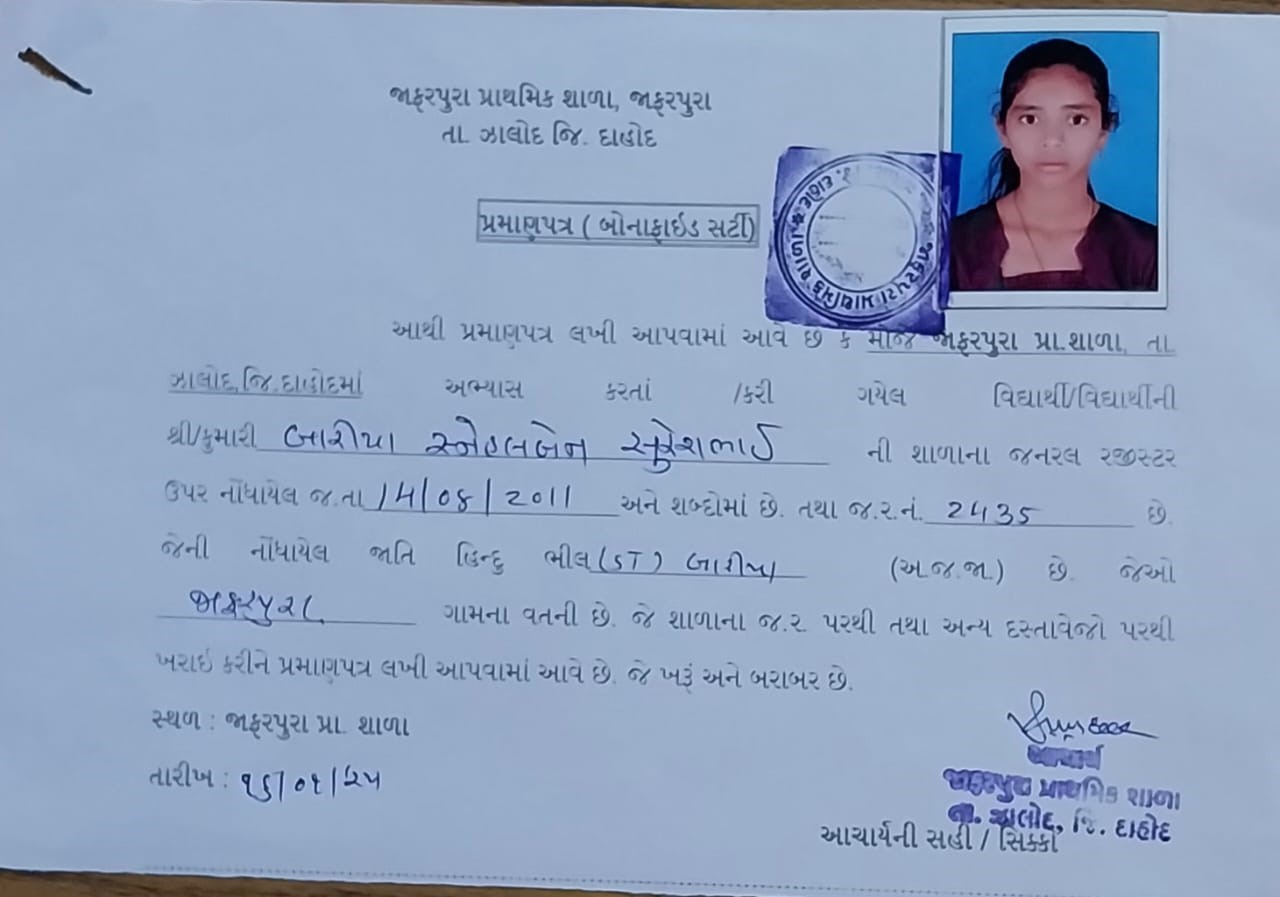 જાફરપુરા પ્રાથમિક શાળા, જાફરપુરા
તા. ઝાલોદ જિ. દાહોદ
પ્રમાણપત્ર ( બોનાફાઇડ સર્ટી)
જાફરપુરા પ્રાથમિક શાળા
આથી પ્રમાણપત્ર લખી આપવામાં આવે છે કે મોજે જાફરપુરા પ્રા.શાળા, તા.
ઝાલોદ,જિ.દાહોદમાં અભ્યાસ કરતાં /કરી ગયેલ વિદ્યાર્થી/વિદ્યાર્થીની
શ્રી/કુમારી બારીયા સ્નેહલબેન સુરેશભાઈ ની શાળાના જનરલ રજીસ્ટર
ઉપર નોંધાયેલ જ.તા 14/08/2011 અને શબ્દોમાં છે. તથા જ.ર.નં. 2435 છે.
જેની નોંધાયેલ જાતિ હિન્દુ ભીલ(ST) બારીયા (અ.જ.જા.) છે. જેઓ
જાફરપુરા ગામના વતની છે. જે શાળાના જ.ર. પરથી તથા અન્ય દસ્તાવેજો પરથી
ખરાઇ કરીને પ્રમાણપત્ર લખી આપવામાં આવે છે. જે ખરૂં અને બરાબર છે.
સ્થળ : જાફરપુરા પ્રા. શાળા
તારીખ : ૧૬/૦૧/૨૫
આચાર્ય
જાફરપુરા પ્રાથમિક શાળા
તા. ઝાલોદ, જિ. દાહોદ
આચાર્યની સહી / સિક્કો